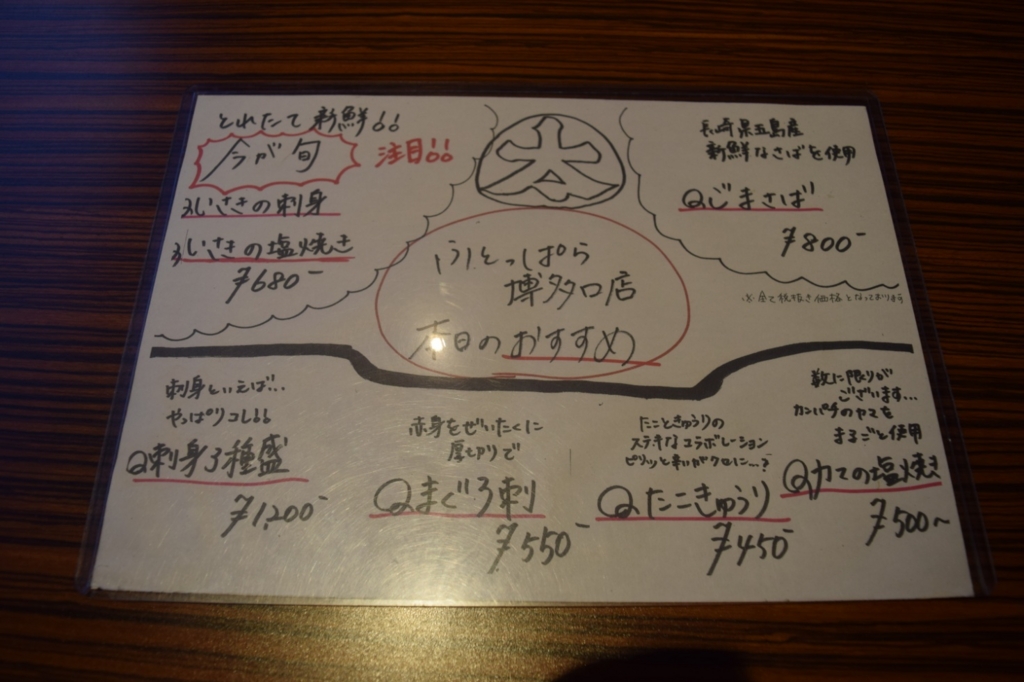 とれたて新鮮!!
今が旬
注目!!
いさきの刺身
いさきの塩焼き
¥680-
太
ふとっぱら
博多口店
本日のおすすめ
長崎県五島産
新鮮なさばを使用
ごまさば
¥800-
※全て税抜き価格となっております
刺身といえば...
やっぱりコレ!!
刺身3種盛
¥1200-
赤身をぜいたくに
厚切りで
まぐろ刺
¥550-
たこときゅうりの
ステキなコラボレーション
ピリッと辛いがクロに...?
たこきゅうり
¥450-
数に限りが
ございます...
カンパチのカマを
まるごと使用
カマの塩焼き
¥500~